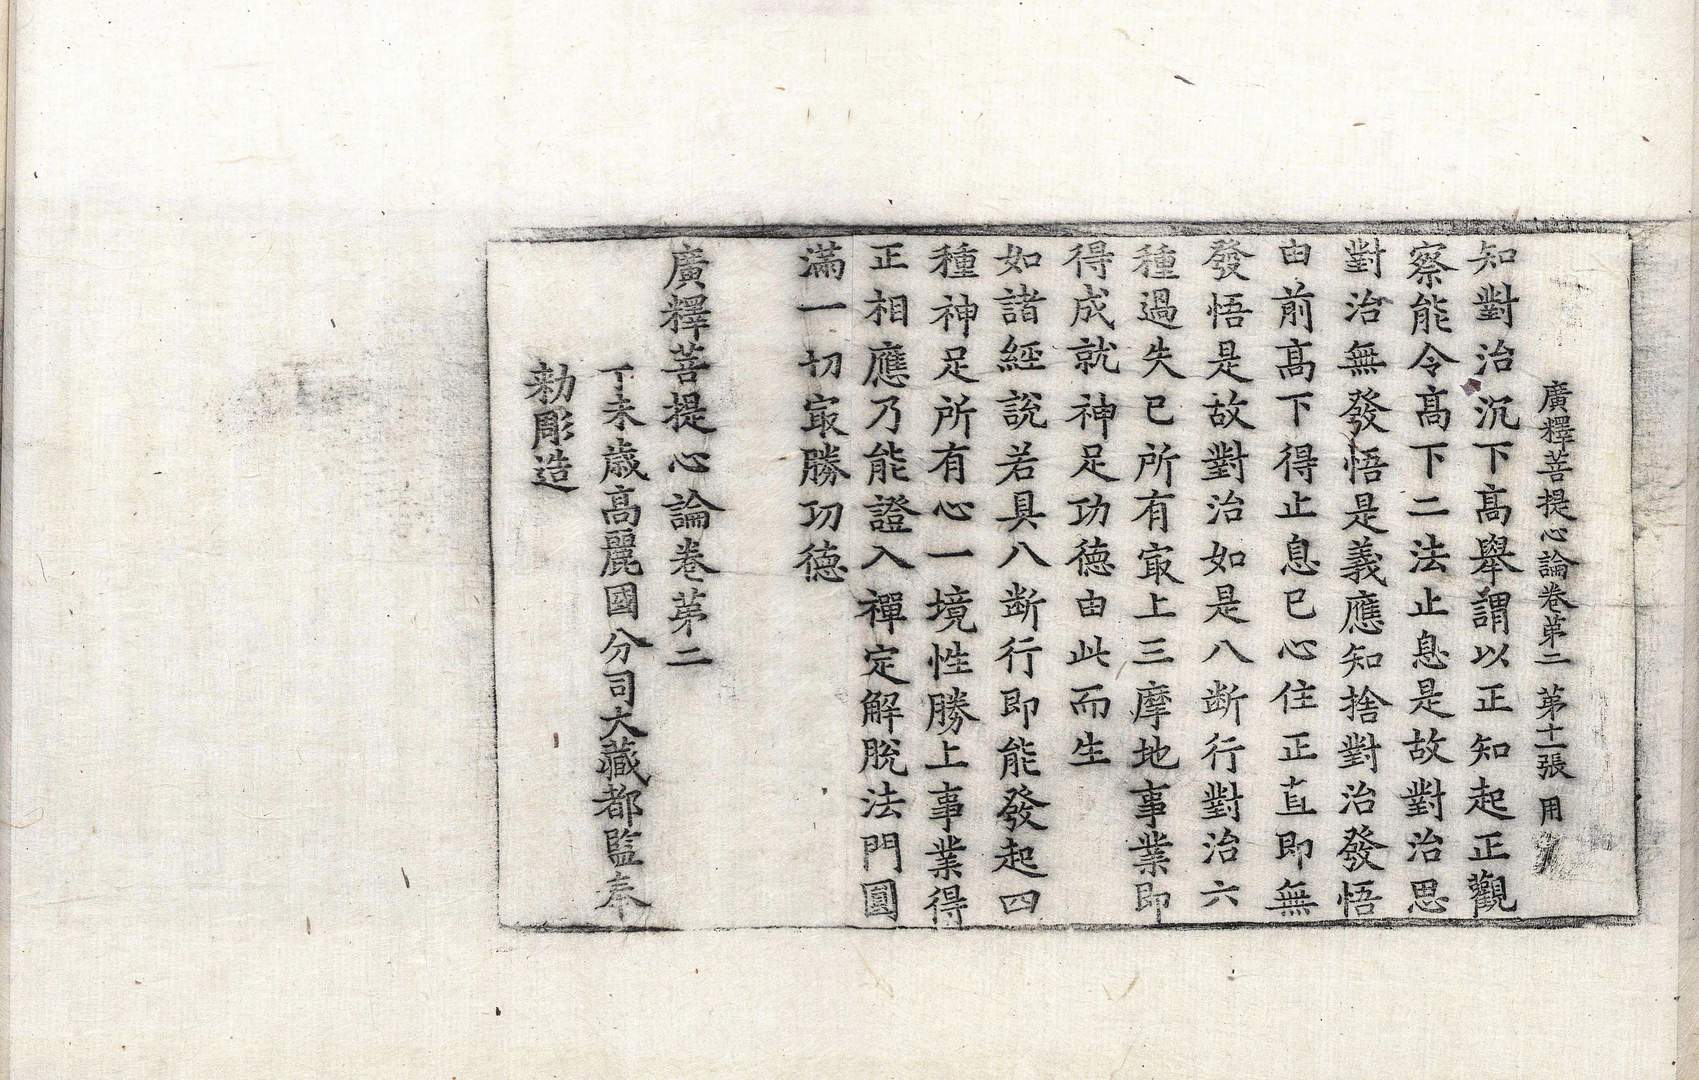 廣釋菩提心論卷苐二 苐十一張 用
知對治沉下髙舉謂以正知起正觀
察能令髙下二法止息是故對治思
對治無發悟是義應知捨對治發悟
由前髙下得止息已心住正直即無
發悟是故對治如是八断行對治六
種過失已所有㝡上三摩地事業即
得成就神足功德由此而生
如諸經說若具八断行即能發起四
種神足所有心一境性勝上事業得
正相應乃能證入禪定解脫法門圓
滿一切㝡勝功德
廣釋菩提心論卷苐二
丁未歲髙麗國分司大藏都監奉
勑彫造